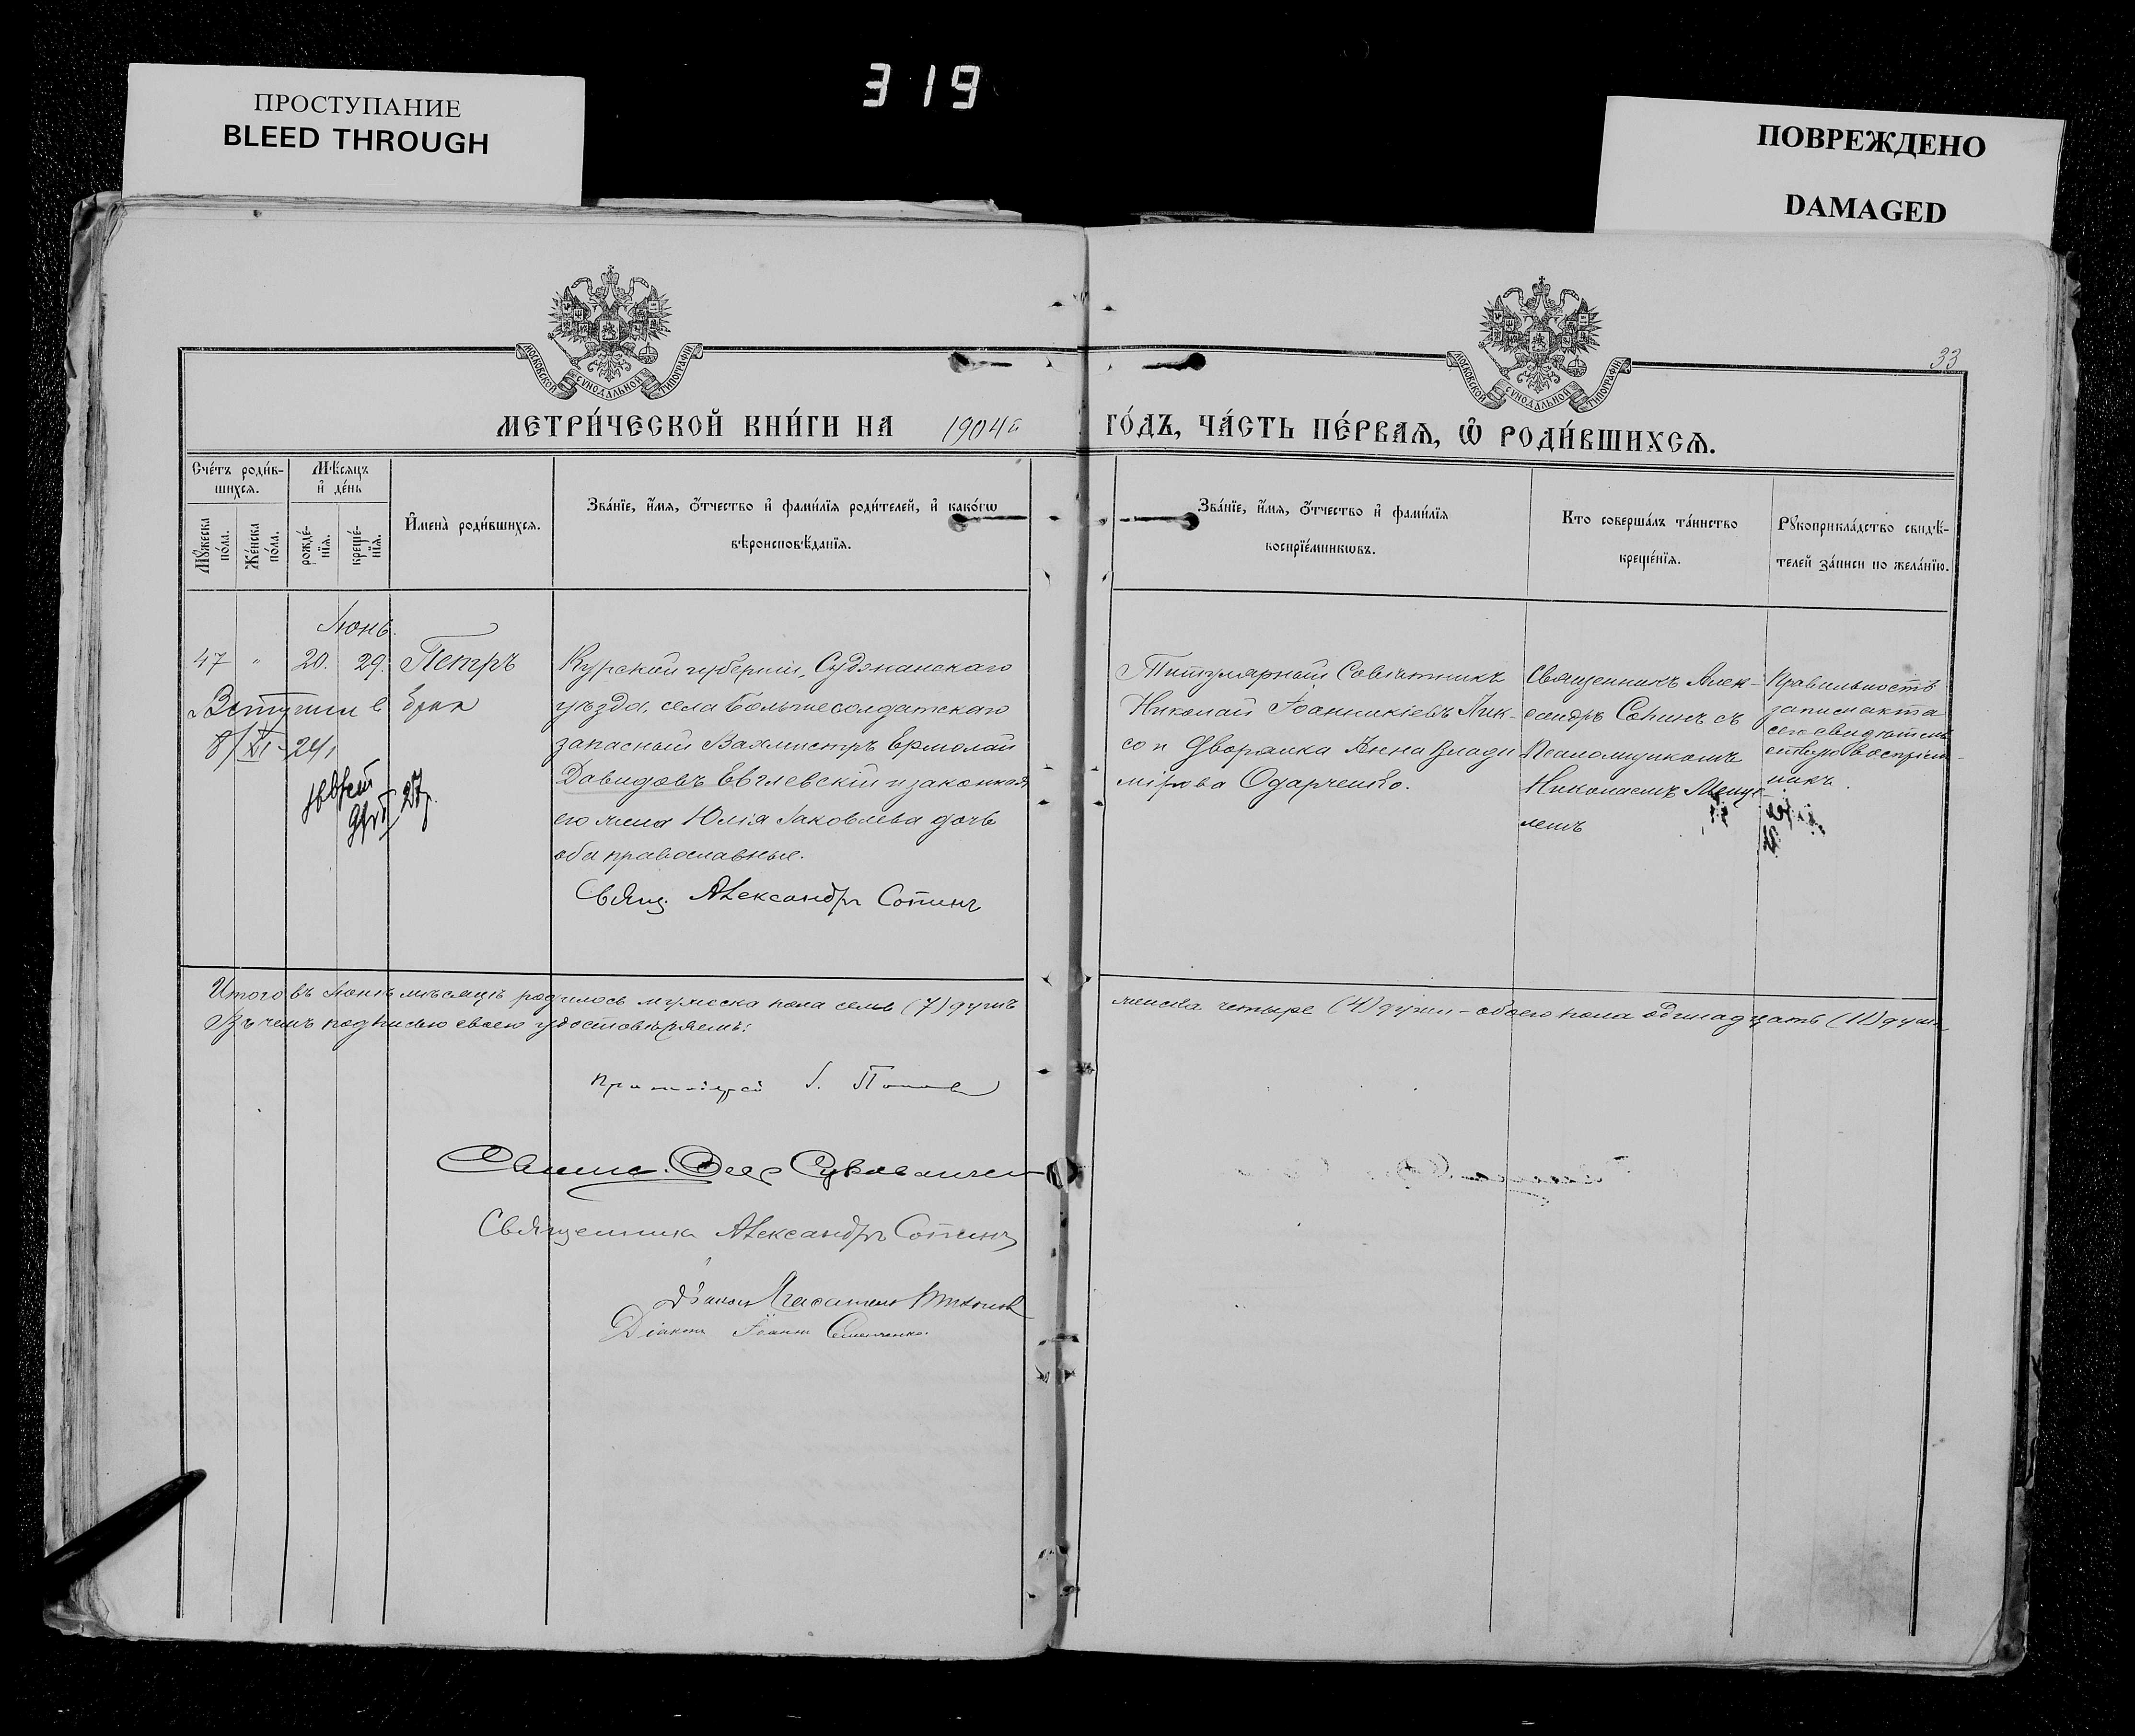 ПРОСТУПАНИЕ
BLEED THROUGH
319
ПОВРЕЖДЕНО
DAMAGED
МОСКОВСКОЙ СѴНОДАЛЬНОЙ ТИПОГРАФІИ
МОСКОВСКОЙ СѴНОДАЛЬНОЙ ТИПОГРАФІИ
33
МЕТРИ́ЧЕСКОЙ КНИ́ГИ НА 1904й
ГО́ДЪ, ЧА́СТЬ ПЕ́РВАѦ, Ѽ РОДИ́ВШИХСѦ.
Сче́тъ роди́в-
шихсѧ.
Мꙋ́жеска
по́ла.
Же́нска
по́ла.
Мѣ́сяцъ
и҆ де́нь
рожде́-
нїѧ.
креще́-
нїѧ.
И҆мена̀ роди́вшихсѧ.
Зва́нїе, и҆́мя, ѻ҆́тчество и҆ фами́лїѧ роди́телей, и҆ како́гѡ
вѣроисповѣ́данїѧ.
Зва́нїе, и҆́мя, ѻ҆́тчество и҆ фами́лїѧ
воспрїе́мникѡвъ.
Кто соверша́лъ та́инство
креще́нїѧ.
Рꙋкоприкла́дство свидѣ́-
телей за́писи по жела́нїю.
Іюнь.
47 " 20. 29. Петръ
Вступил в брак
8/XI-24,
Курской губерніи, Суджанскаго
уѣзда, села Большесолдатскаго
запасный Вахмистръ Ермолай
Давидовъ Евглевскій и законная
его жена Юлія Іаковлева дочь
оба православные.
Свящ. Александръ Сопинъ
Титулярный Совѣтникъ
Николай Іоанникіевъ Лик-
со и Дворянка Анна Влади
мірова Одарченко.
Священникъ Алек-
сандръ Сопинъ съ
Псаломщикомъ
Николаемъ
Правильность
записи акта
сего свидѣтель
ствую воспріем-
никъ.
Итого въ Іюнѣ мѣсяцѣ родилось мужеска пола семь (7) душъ
женска четыре (4) души - обоего пола одинадцать (11) душъ
Въ чемъ подписью своею удостовѣряемъ:
Протоіерей І. Попов
Священникъ Александръ Сопинъ
Діаконъ
Діаконъ Іоаннъ Семенченко.